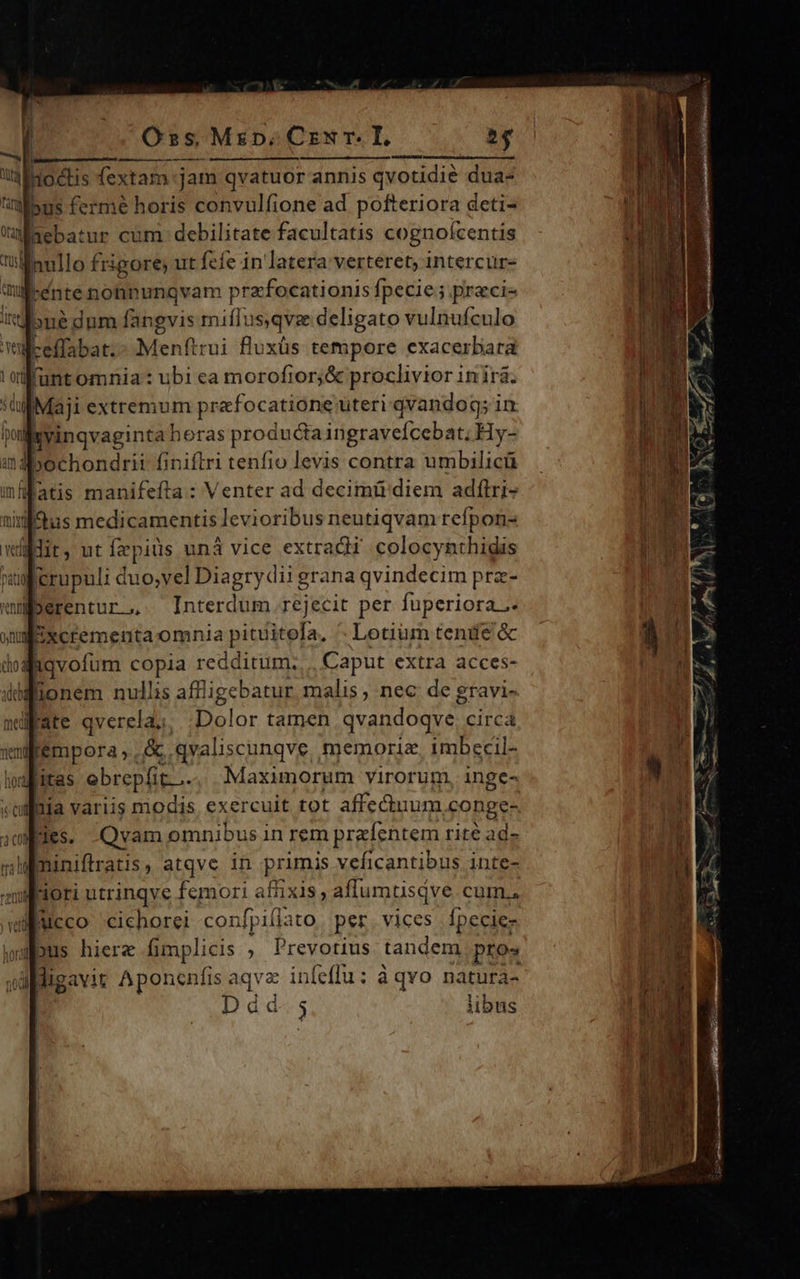 OBS. MED. CENT. I. 25
noctis sextam jam qvatuor annis qvotidiè dua-
bus fermè horis convulsione ad posteriora deti-
nebatur cum debilitate facultatis cognoscentis
nullo frigore, ut sese in latera verteret, intercur-
rente nonnunqvam præfocationis specie; præci-
puè dum sangvis missus, qvæ deligato vulnusculo
cessabat. Menstrui fluxûs tempore exacerbata
sunt omnia: ubi ea morosior, & proclivior in irâ.
Maji extremum præfocatione uteri qvandoq; in
qvinqvaginta horas producta ingravescebat. Hy-
pochondrii sinistri tensio levis contra umbilicũ
satis manifesta: Venter ad decimũ diem adstri-
ctus medicamentis levioribus neutiqvam respon-
dit, ut sæpiùs unâ vice extracti colocynthidis
scrupuli duo, vel Diagrydii grana qvindecim præ-
berentur. Interdum rejecit per superiora.
Excrementa omnia pituitosa. Lotium tenue &
aqvosum copia redditum. Caput extra acces-
sionem nullis affligebatur malis, nec de gravi-
tate qverela. Dolor tamen qvandoqve circa
tempora, & qvaliscunqve memoriæ imbecil-
litas obrepsit. Maximorum virorum inge-
nia variis modis exercuit tot affectuum conge-
ries. Qvam omnibus in rem præsentem ritè ad-
ministratis, atqve in primis vesicantibus inte-
riori utrinqve femori affixis, assumtisqve cum
succo cichorei conspissato per vices specie-
bus hieræ simplicis, Prevotius tandem pro-
fligavit Aponensis aqvæ insessu: à qvo natura-
Ddd 5 libus